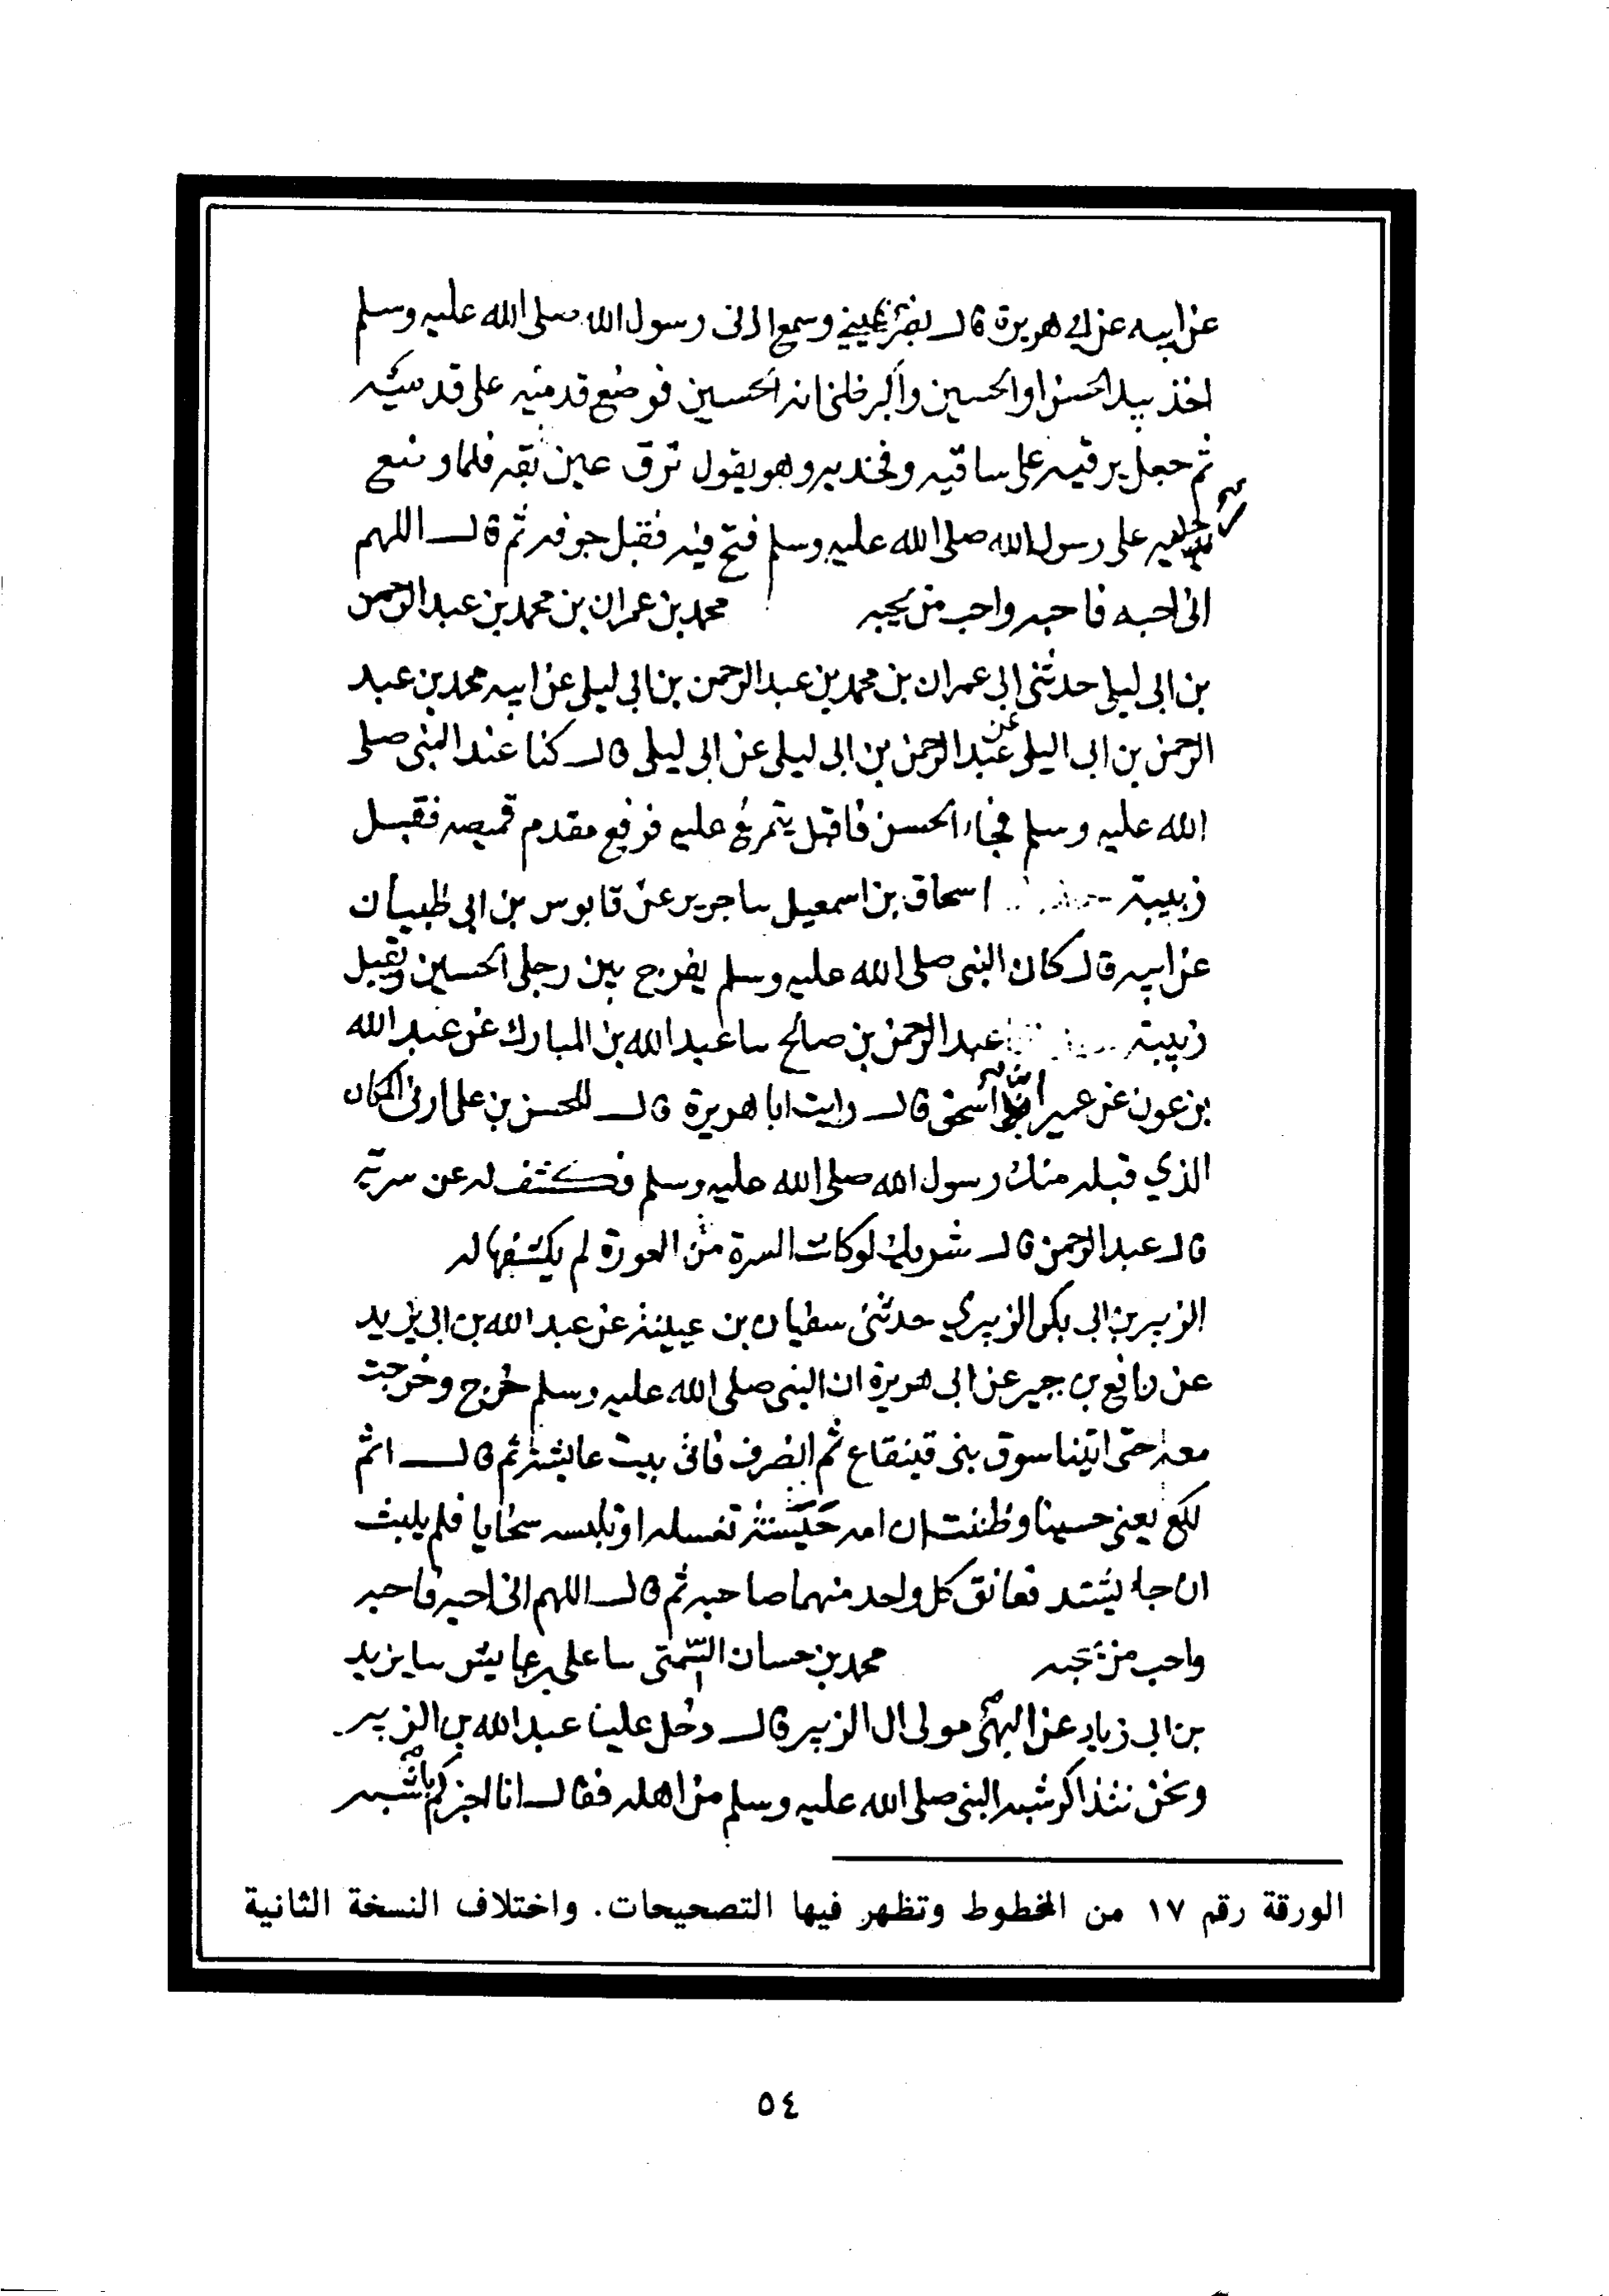 عن ابيه عن ابي هريرة قال بصر عيني وسمع اذني رسول الله صلى الله عليه وسلم
اخذ بيد الحسن او الحسين واكبر ظني انه الحسين فوضع قدميه على قدميه
ثم جعل يرقيه على ساقيه وفخذيه وهو يقول ترق عين بقه فلما وضع
على رسول الله صلى الله عليه وسلم فتح فيه فقبل جوفه ثم قال اللهم
انى احبه فاحبه واحب من يحبه محمد بن عمران بن محمد بن عبد الرحمن
بن ابى ليلى حدثنى ابى عمران بن محمد بن عبد الرحمن بن ابى ليلى عن ابيه محمد بن عبد
الرحمن بن ابى اليلى عن عبد الرحمن بن ابى ليلى عن ابى ليلى قال كنا عند النبى صلى
الله عليه وسلم فجاء الحسن فاقبل يتمرغ عليه فرفع مقدم قميصه فقبل
زبيبته اسحاق بن اسمعيل سا جرير عن قابوس بن ابى ظبيان
عن ابيه قال كان النبى صلى الله عليه وسلم يفرج بين رجلى الحسين ويقبل
زبيبته عبد الرحمن بن صالح سا عبد الله بن المبارك عن عبد الله
بن عون عن عمير ابن اسحق قال رايت ابا هريرة قال للحسن بن على ارنى المكان
الذي قبله منك رسول الله صلى الله عليه وسلم فكشف له عن سرته
قال عبد الرحمن قال شريك لو كانت السرة من العورة لم يكشفها له
الزبير بن ابى بكر الزبيري حدثنى سفيان بن عيينة عن عبد الله بن ابى يزيد
عن نافع بن جبير عن ابى هريرة ان النبى صلى الله عليه وسلم خرج وخرجت
معه حتى اتينا سوق بنى قينقاع ثم انصرف فاتى بيت عايشة ثم قال اثم
لكع يعنى حسينا وظننت ان امه حبسته تغسله او تلبسه سخابا فلم يلبث
ان جاء يشتد فعانق كل واحد منهما صاحبه ثم قال اللهم انى احبه فاحبه
واحب من يحبه محمد بن حسان السمتى سا على بن عابس سا يزيد
بن ابى زياد عن البهى مولى ال الزبير قال دخل علينا عبد الله بن الزبير
ونحن نتذاكر شبه النبى صلى الله عليه وسلم من اهله فقال انا اخبركم باشبه
الورقة رقم ١٧ من المخطوط وتظهر فيها التصحيحات. واختلاف النسخة الثانية
٥٤